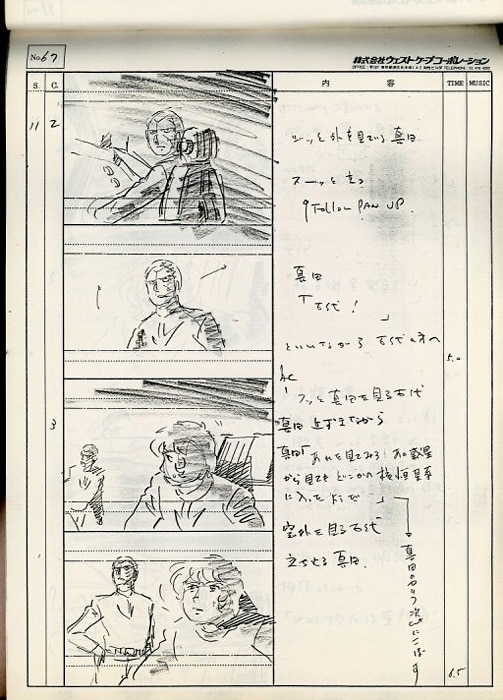 No. 67
株式会社ウェストケープコーポレーション
S. C. 内 容 TIME MUSIC
11 2
ジーッと外を見ている真田
スーッと立つ
Follow PAN UP.
真田
「古代!」
といいながら 古代の方へ
5.0
3
フッと真田を見る古代
真田 近づきながら
真田「あれを見てみろ!あの
から見ても どこかの 恒星系
に入ったようだ」
室外を見る古代
立ちどまる真田.
真田のセリフ次にこぼす
6.5